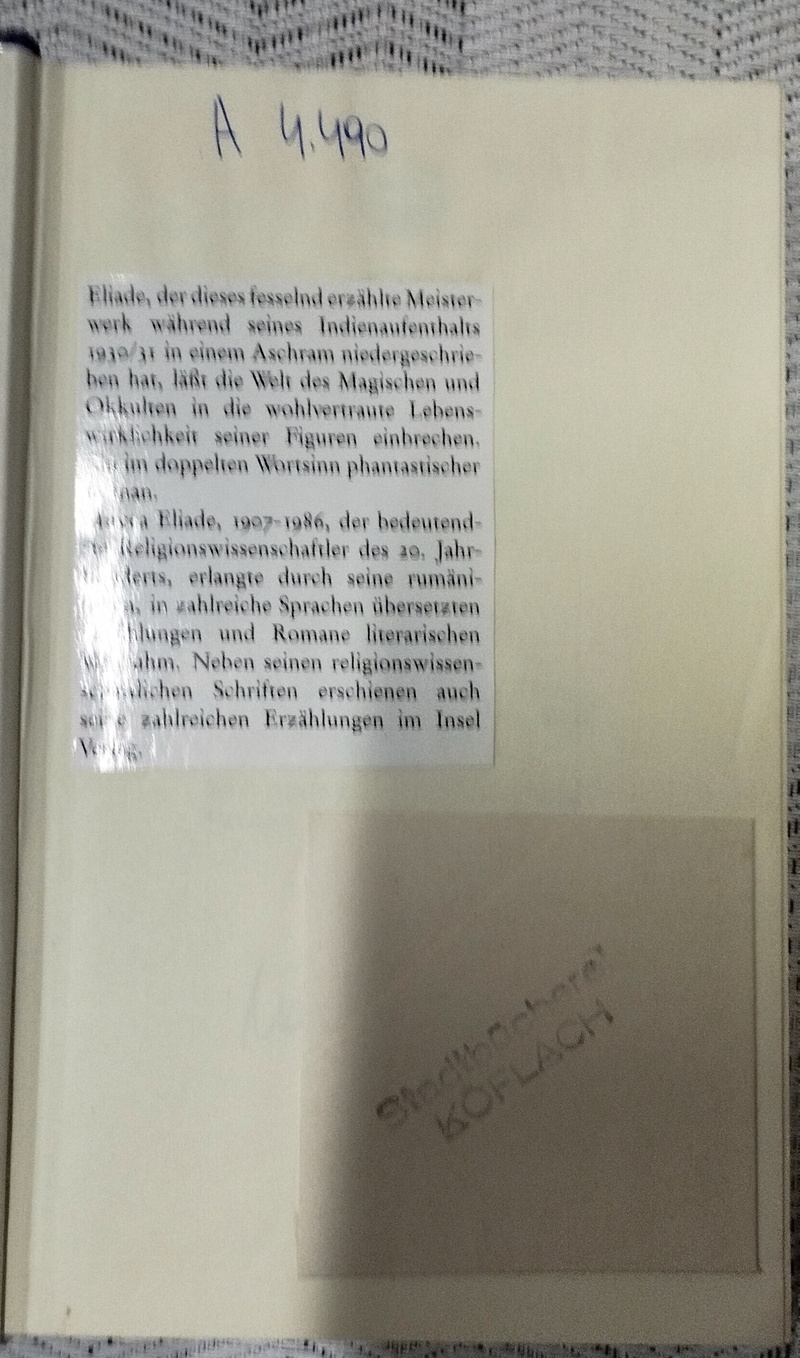 A 4.490
Eliade, der dieses fesselnd erzählte Meister-
werk während seines Indienaufenthalts
1930/31 in einem Aschram niedergeschrie-
ben hat, läßt die Welt des Magischen und
Okkulten in die wohlvertraute Lebens-
wirklichkeit seiner Figuren einbrechen.
Ein im doppelten Wortsinn phantastischer
Roman.
Mircea Eliade, 1907-1986, der bedeutend-
ste Religionswissenschaftler des 20. Jahr-
hunderts, erlangte durch seine rumäni-
schen, in zahlreiche Sprachen übersetzten
Erzählungen und Romane literarischen
Weltruhm. Neben seinen religionswissen-
schaftlichen Schriften erschienen auch
seine zahlreichen Erzählungen im Insel
Verlag.
Stadtbücherei
KÖFLACH